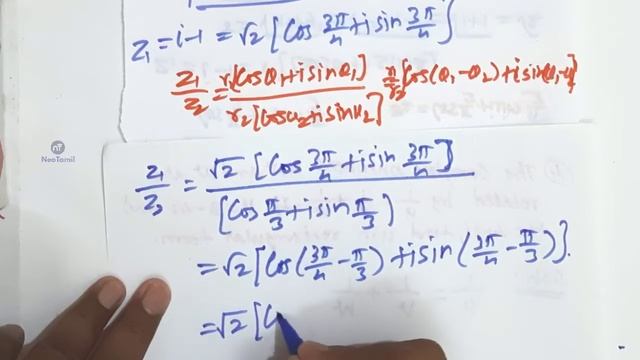 z₁ = i-1 = √2 [cos 3π/4 + i sin 3π/4]
z₁/z₂ = r₁[cosθ₁+isinθ₁]/r₂[cosθ₂+isinθ₂] r₁/r₂ [cos(θ₁-θ₂)+isin(θ₁-θ₂)]
NT
NeoTamil
z₁/z₂ = √2 [cos 3π/4 + i sin 3π/4]/[cos π/3 + i sin π/3]
= √2 [cos(3π/4 - π/3) + i sin(3π/4 - π/3)].
= √2 [c